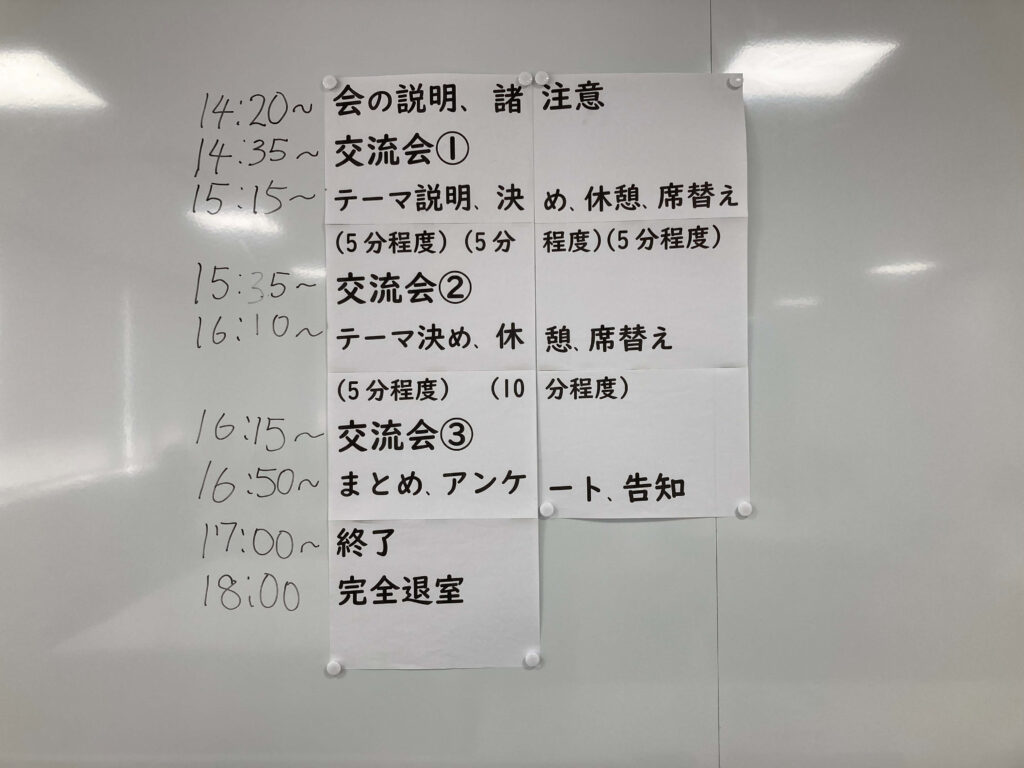 14:20～ 会の説明、諸注意
14:35～ 交流会①
15:15～ テーマ説明、決め、休憩、席替え
(5分程度)(5分程度)(5分程度)
15:35～ 交流会②
16:10～ テーマ決め、休憩、席替え
(5分程度) (10分程度)
16:15～ 交流会③
16:50～ まとめ、アンケート、告知
17:00～ 終了
18:00 完全退室